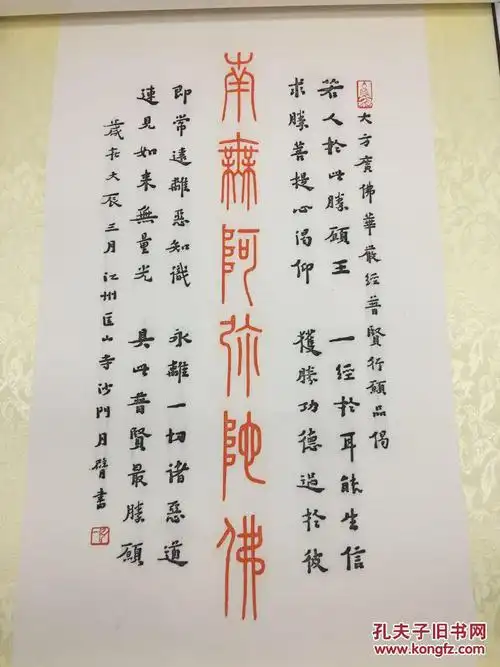 大方廣佛華嚴經普賢行願品偈
若人於此勝願王 一經於耳能生信
求勝菩提心渴仰 獲勝功德過於彼
南無阿弥陀佛
即常遠離惡知識 永離一切諸惡道
速見如来無量光 具此普賢最勝願
歲在辰三月江州匡山寺沙門月臂書
孔夫子旧书网
www.kongfz.com